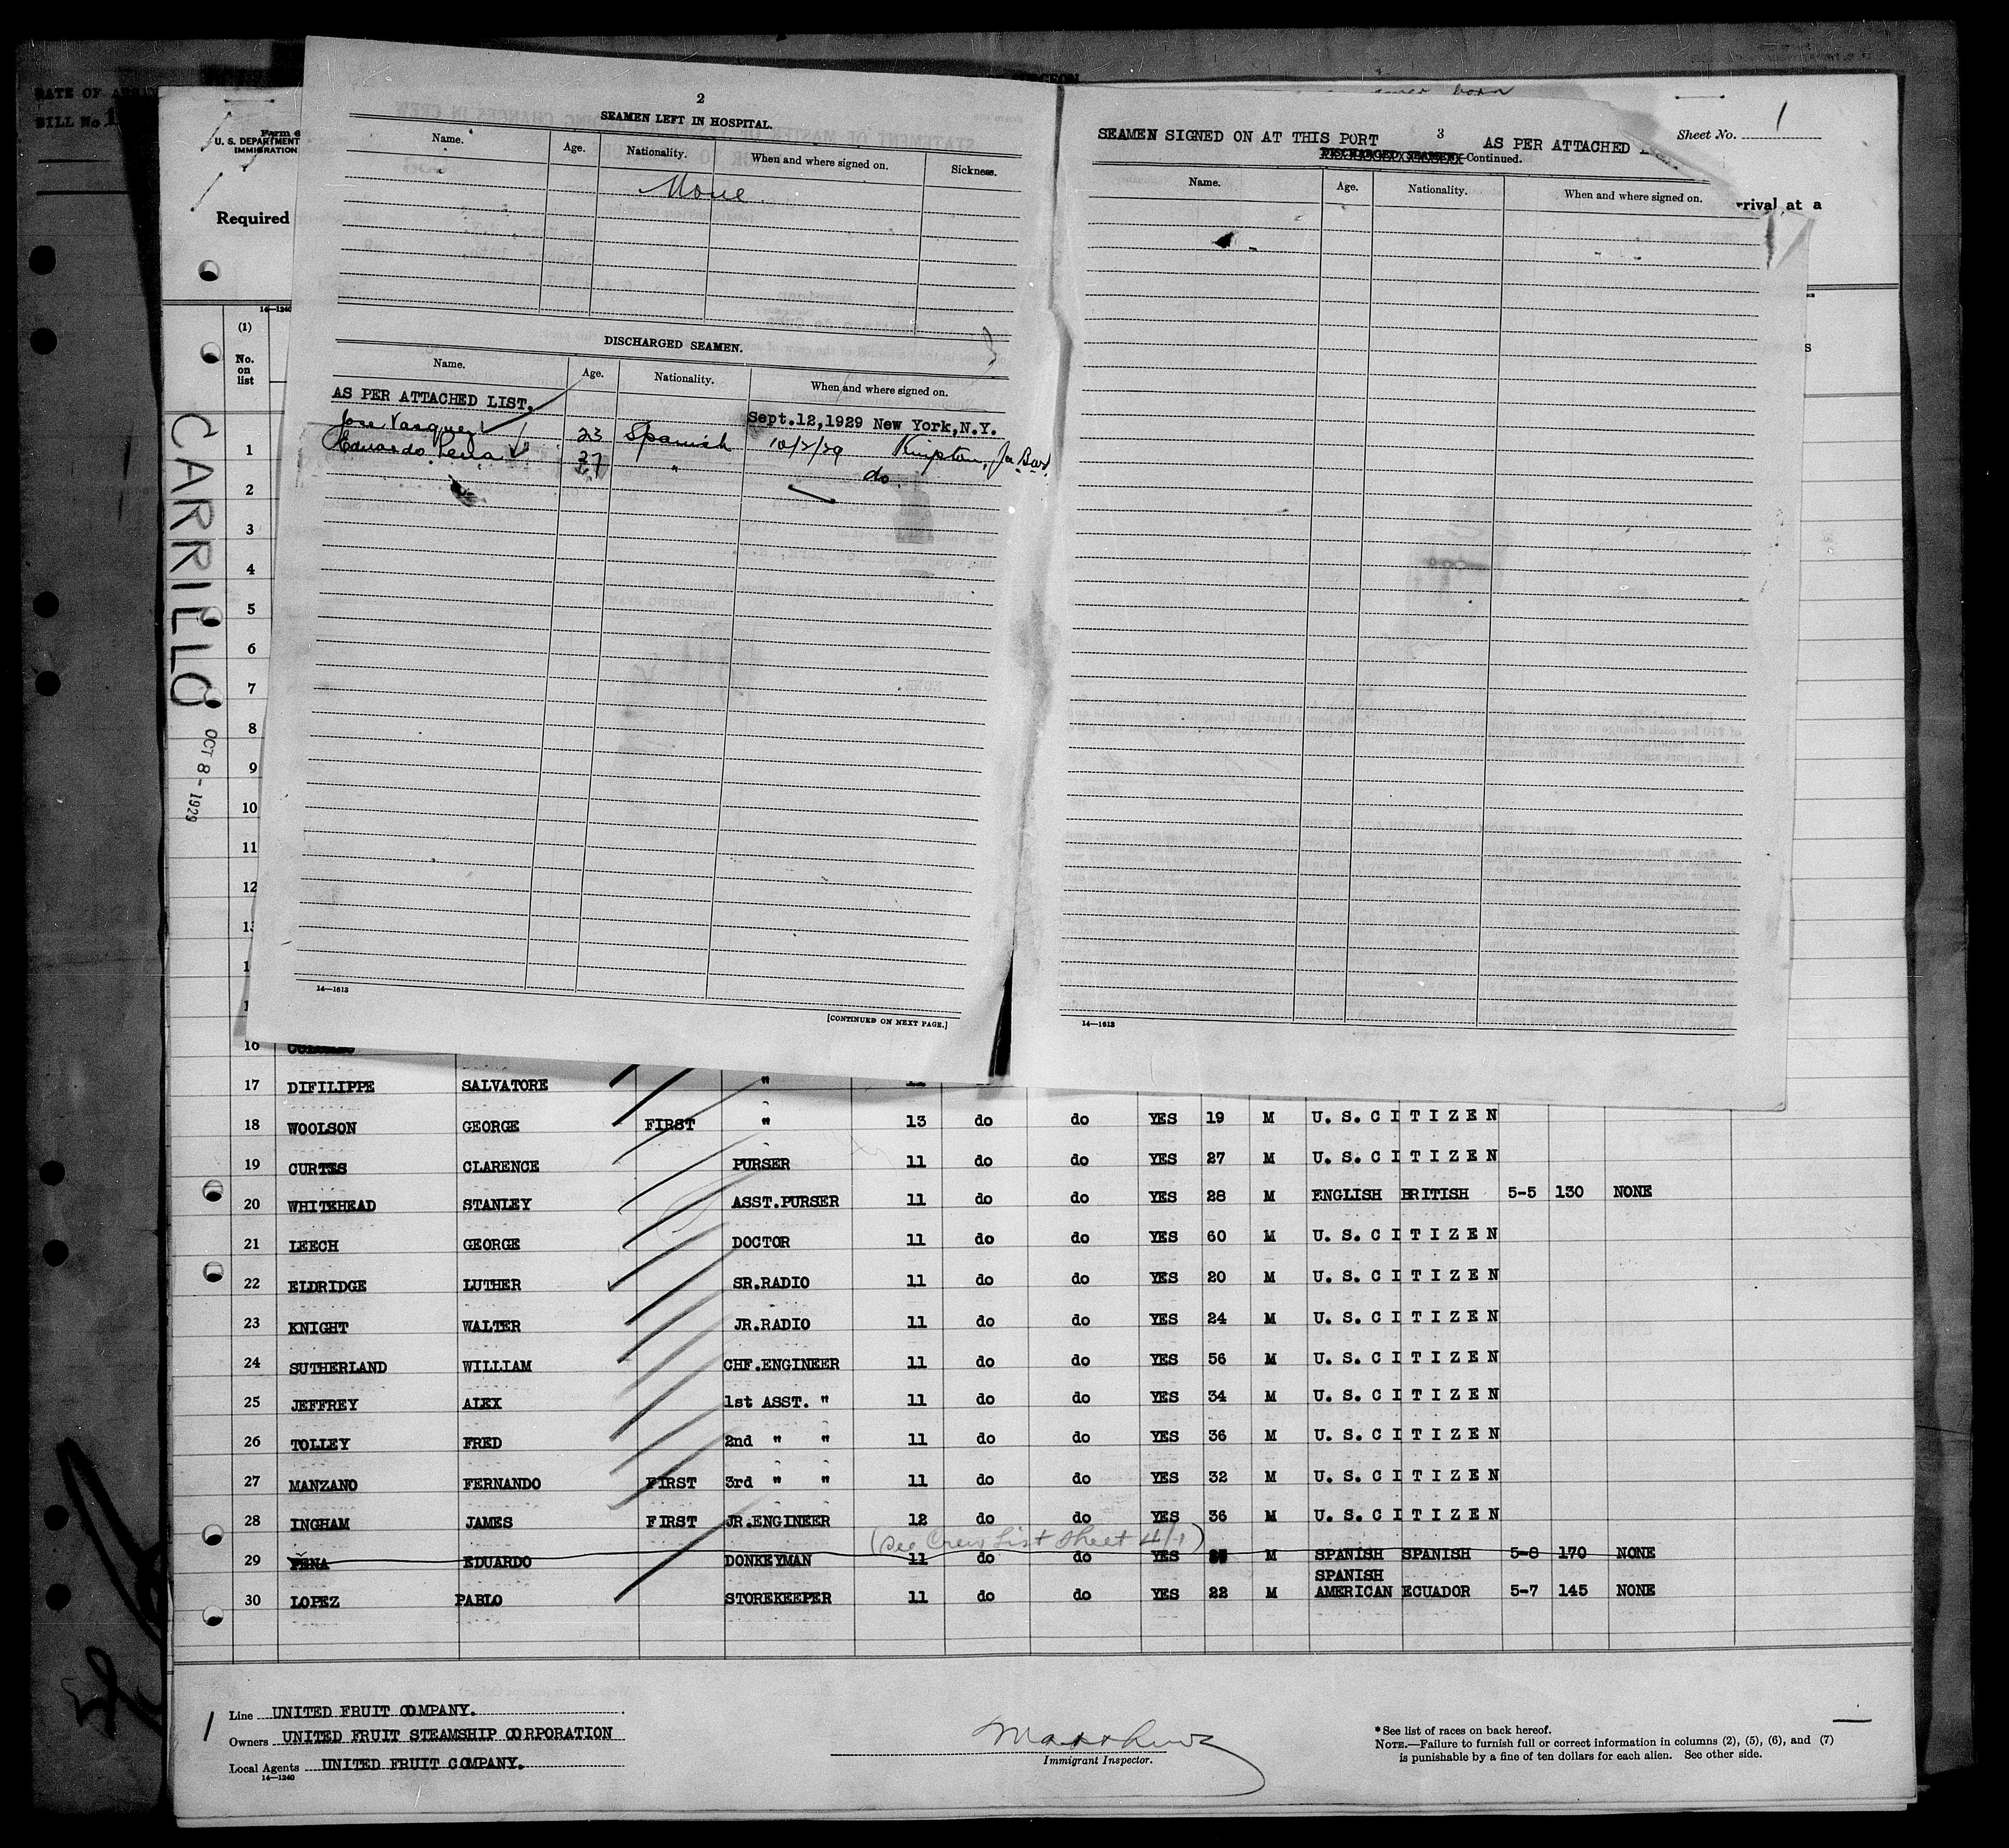 DATE OF
BILL No 1
Form 6
U. S. DEPARTMENT
IMMIGRATION
Required
Sheet No. 1
rrival at a
14—1240
(1)
No.
on
list
CARRILLO
OCT 8 - 1929
2
SEAMEN LEFT IN HOSPITAL.
Name. Age. Nationality. When and where signed on. Sickness.
None.
DISCHARGED SEAMEN.
Name. Age. Nationality. When and where signed on.
AS PER ATTACHED LIST.
Sept.12,1929 New York,N.Y.
Jose Vasquez 23 Spanish 10/2/29 Kingston, Ja
Eduardo Pena 27 " do.
14—1613
[CONTINUED ON NEXT PAGE.]
3
SEAMEN SIGNED ON AT THIS PORT AS PER ATTACHED
DISCHARGED SEAMEN—Continued.
Name. Age. Nationality. When and where signed on.
14—1613
1
2
3
4
5
6
7
8
9
10
11
12
16
17 DIFILIPPE SALVATORE "
18 WOOLSON GEORGE FIRST " 13 do do YES 19 M U. S. C I T I Z E N
19 CURTIS CLARENCE PURSER 11 do do YES 27 M U. S. C I T I Z E N
20 WHITEHEAD STANLEY ASST.PURSER 11 do do YES 28 M ENGLISH BRITISH 5-5 130 NONE
21 LEECH GEORGE DOCTOR 11 do do YES 60 M U. S. C I T I Z E N
22 ELDRIDGE LUTHER SR.RADIO 11 do do YES 20 M U. S. C I T I Z E N
23 KNIGHT WALTER JR.RADIO 11 do do YES 24 M U. S. C I T I Z E N
24 SUTHERLAND WILLIAM CHF.ENGINEER 11 do do YES 56 M U. S. C I T I Z E N
25 JEFFREY ALEX 1st ASST. " 11 do do YES 34 M U. S. C I T I Z E N
26 TOLLEY FRED 2nd " " 11 do do YES 36 M U. S. C I T I Z E N
27 MANZANO FERNANDO FIRST 3rd " " 11 do do YES 32 M U. S. C I T I Z E N
28 INGHAM JAMES FIRST JR.ENGINEER 12 do do YES 36 M U. S. C I T I Z E N
(See Crew List Sheet 4/1)
29 PENA EDUARDO DONKEYMAN 11 do do YES M SPANISH SPANISH 5-8 170 NONE
SPANISH
30 LOPEZ PABLO STOREKEEPER 11 do do YES 22 M AMERICAN ECUADOR 5-7 145 NONE
1
Line UNITED FRUIT COMPANY.
Owners UNITED FRUIT STEAMSHIP CORPORATION
Local Agents UNITED FRUIT COMPANY.
14—1240
Immigrant Inspector.
*See list of races on back hereof.
NOTE.—Failure to furnish full or correct information in columns (2), (5), (6), and (7)
is punishable by a fine of ten dollars for each alien. See other side.